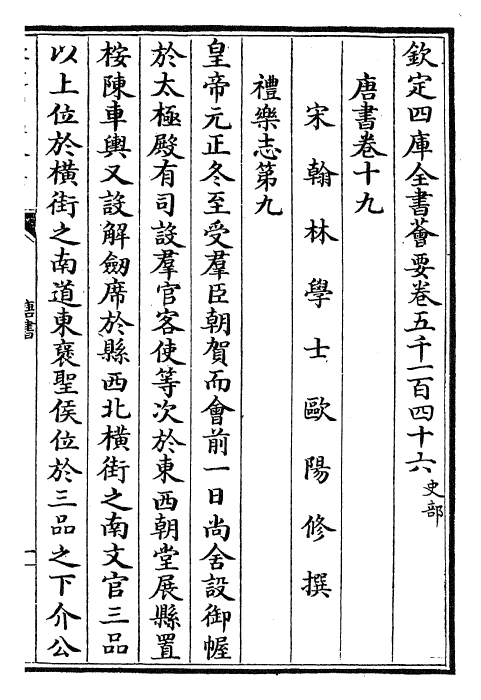 欽定四庫全書薈要卷五千一百四十六史部
唐書卷十九
宋翰林學士歐陽修撰
禮樂志第九
皇帝元正冬至受羣臣朝賀而會前一日尚舍設御幄
於太極殿有司設羣官客使等次於東西朝堂展縣置
桉陳車輿又設解劔席於縣西北橫街之南文官三品
以上位於橫街之南道東褒聖侯位於三品之下介公
唐書